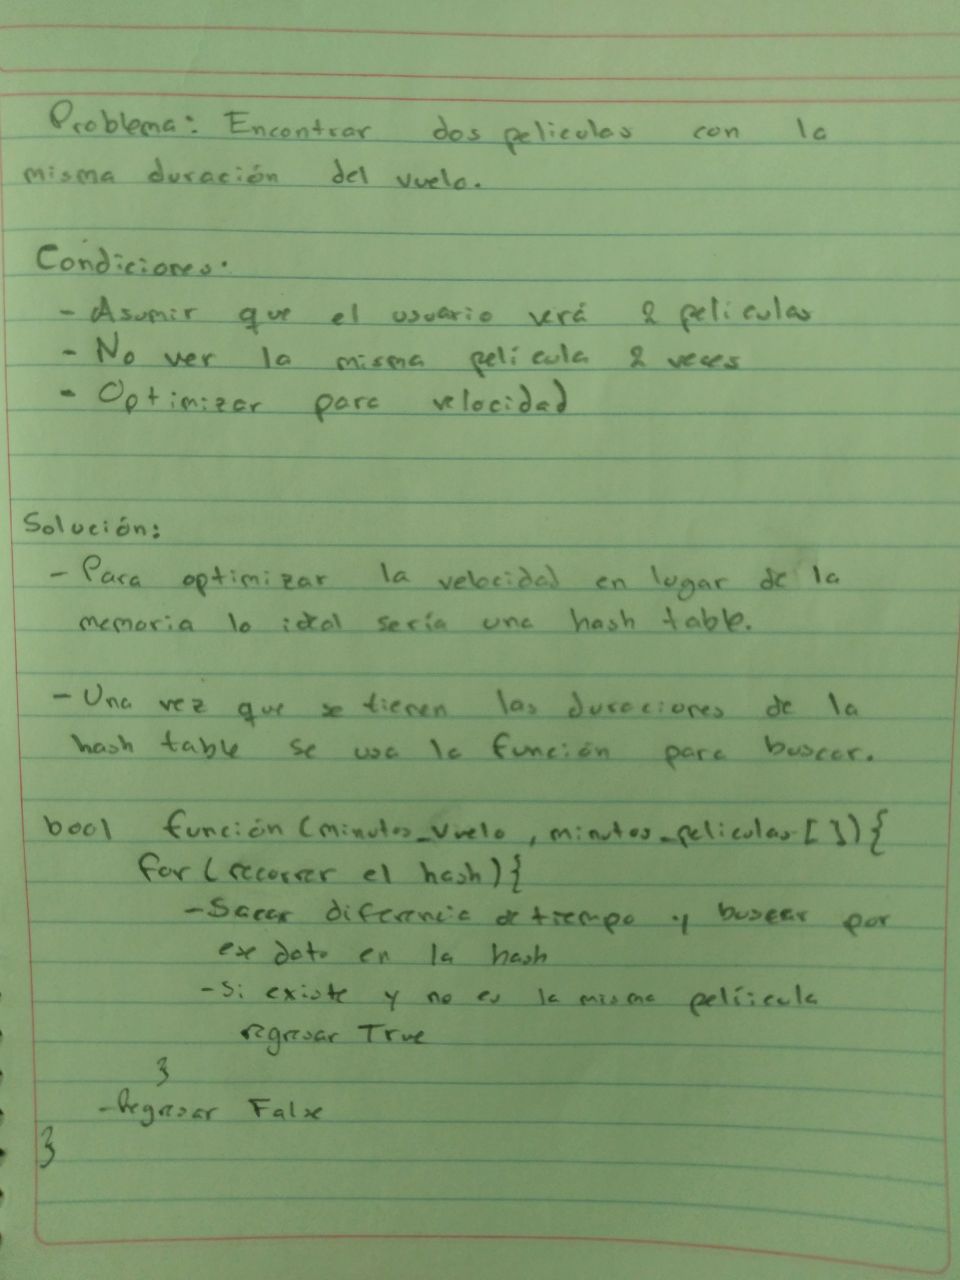 Problema: Encontrar dos peliculas con la
misma duración del vuelo.
Condiciones:
- Asumir que el usuario verá 2 peliculas
- No ver la misma película 2 veces
- Optimizar para velocidad
Solución:
- Para optimizar la velocidad en lugar de la
memoria lo ideal sería una hash table.
- Una vez que se tienen las duraciones de la
hash table se usa la función para buscar.
bool función (minutos_vuelo, minutos_peliculas[]){
for (recorrer el hash){
- Sacar diferencia de tiempo y buscar por
ese dato en la hash
- Si existe y no es la misma película
regresar True
}
- Regresar False
}